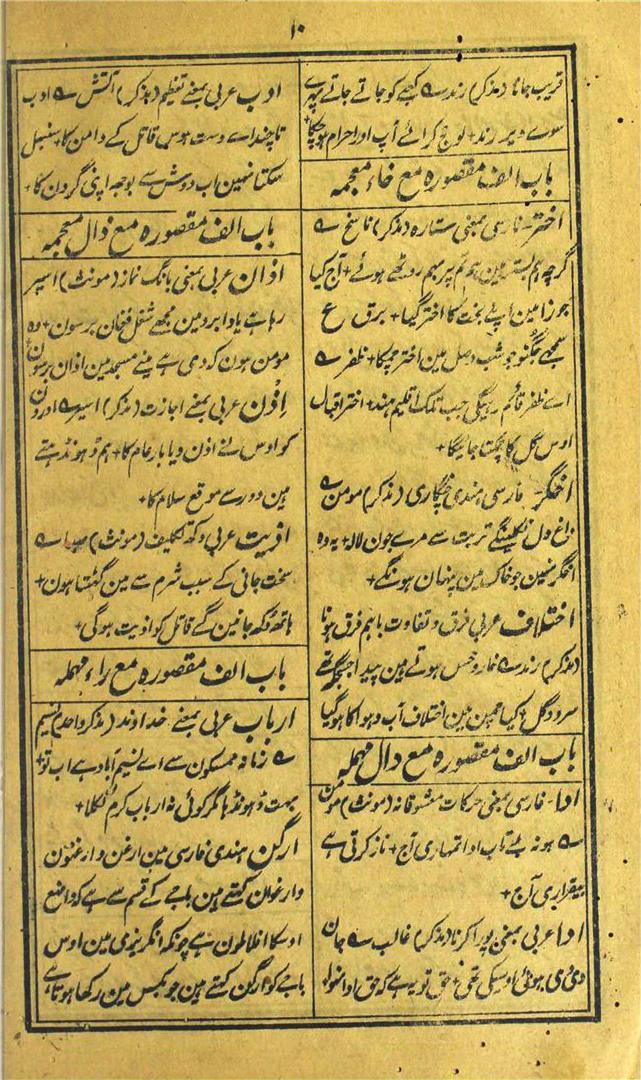 ۱۰
قریب جانا (مذکر) رند ؎ کعبے کو جاتے جاتے پھرے
سوے دیر رند + لوجج کرائے آپ اور احرام ہوچکا +
باب الف مقصورہ مع خاء معجمہ
اختر۔ فارسی بمعنی ستارہ (مذکر) ناسخ ؎
گرچہ ہم بستر مین ہم تم پر ہم روٹھے ہوئے + آج کیا
جوزا مین اپنے بخت کا اختر گیا + برق ع
سمجھے جگنو جو شب وصل مین اختر چمکا + ظفر ؎
اے ظفر قائم رہیگی جب تلک اقلیم ہند + اختر اقبال
اوس گل کا چمکتا جائیگا +
اخگر۔ فارسی ہندی چنگاری (مذکر) مومن ؎
داغ دل نکلینگے تربت سے مرے جون لالہ + یہ وہ
اخگر نہین جو خاک مین پنہان ہونگے +
اختلاف عربی فرق و تفاوت باہم فرق ہونا
(مذکر) رند ؎ خار و خس ہوتے ہین پیدا جگھے تھے
سرو و گل + کیا چمن مین اختلاف آب و ہوا کا ہوگیا
باب الف مقصورہ مع دال مہملہ
ادا۔ فارسی بمعنی حرکات معشوقانہ (مونث) مومن
؎ ہو نہ بیتاب ادا تمہاری آج + ناز کرتی ہے
بیقراری آج +
ادا عربی بمعنی پورا کرنا (مذکر) غالب ؎ جان
دی دی ہوئی اوسکی تھی + حق تو یہ ہے کہ حق ادا نہوا +
ادب عربی بمعنے تعظیم (مذکر) آتش ؎ ادب
تاچند اے دست ہوس قاتل کے دامن کا + سنبھل
سکتا نہین اب دوش سے بوجھ اپنی گردن کا +
باب الف مقصورہ مع ذال معجمہ
اذان عربی بمعنی بانگ نماز (مونث) اسیر
رہا ہے یاد ابرو مین مجھے شغل فغان برسون + وہ
مومن ہون کہ دی ہے مینے مسجد مین اذان برسون
اِذْن عربی بمعنے اجازت (مذکر) اسیر ؎ اورون
کو اوس نے اذن دیا بار عام کا + ہم ڈھونڈھتے
ہین دور سے موقع سلام کا +
اذیت عربی دکھ تکلیف (مونث) صبا ؎
سخت جانی کے سبب شرم سے مین گھٹتا ہون +
ہاتھ دکھ جائین گے قاتل کو اذیت ہوگی +
باب الف مقصورہ مع راء مہملہ
ارباب عربی بمعنے خداوند (مذکر واحد) نسیم
؎ زمانہ ممسکون سے اے نسیم آباد ہے اب تو +
بہت ڈھونڈھا مگر کوئی نہ ارباب کرم نکلا +
ارگن ہندی فارسی مین ارغن و ارغنون
و ارغوان کہتے ہین باجے کے قسم سے ہے کہ واضع
اوسکا افلاطون ہے چونکہ انگریزی مین اوس
باجے کو ارگن کہتے ہین جو بکس مین رکھا ہوتا ہے